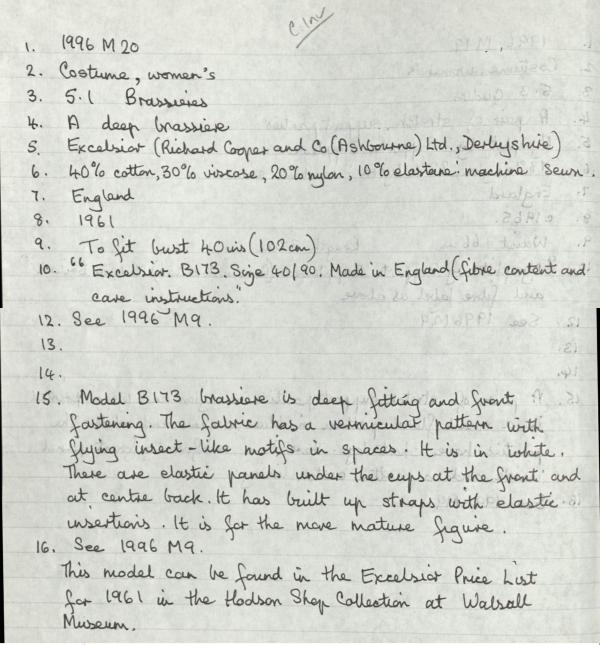 C. Inv
1. 1996 M 20
2. Costume, women's
3. 5.1 Brassieres
4. A deep brassiere
5. Excelsior (Richard Cooper and Co (Ashbourne) Ltd., Derbyshire)
6. 40% cotton, 30% viscose, 20% nylon, 10% elastane: machine sewn.
7. England
8. 1961
9. To fit bust 40ins (102cm)
10. "Excelsior. B173. Size 40/90. Made in England (fibre content and
care instructions."
12. See 1996 M9.
13.
14.
15. Model B173 brassiere is deep fitting and front
fastening. The fabric has a vermicular pattern with
flying insect-like motifs in spaces. It is in white.
There are elastic panels under the cups at the front and
at centre back. It has built up straps with elastic
insertions. It is for the more mature figure.
16. See 1996 M9.
This model can be found in the Excelsior Price List
for 1961 in the Hodson Shop Collection at Walsall
Museum.